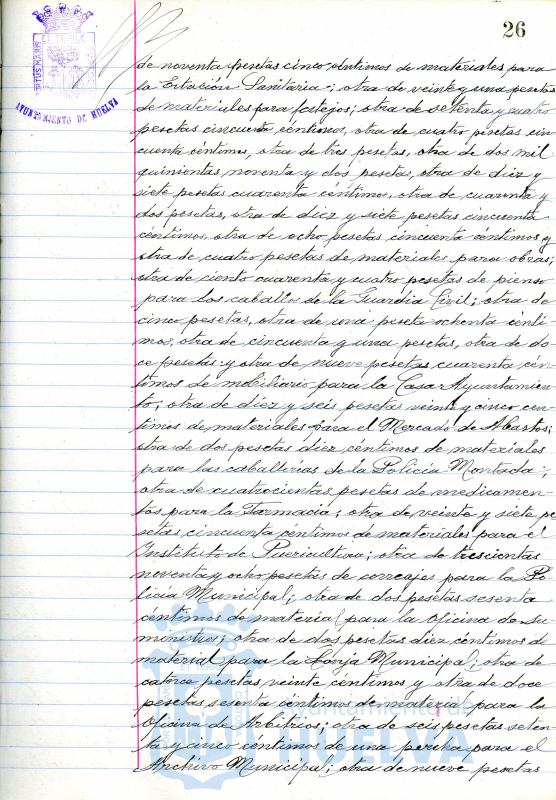 26
PORTUS MARIS
AYUNTAMIENTO DE HUELVA
de noventa pesetas cinco céntimos de materiales para
la Estación Sanitaria; otra de veinte y una pesetas
de materiales para festejos; otra de setenta y cuatro
pesetas cincuenta céntimos, otra de cuatro pesetas cin
cuenta céntimos, otra de tres pesetas, otra de dos mil
quinientas, noventa y dos pesetas, otra de diez y
siete pesetas cuarenta céntimos, otra de cuarenta y
dos pesetas, otra de diez y siete pesetas cincuenta
céntimos, otra de ocho pesetas cincuenta céntimos y
otra de cuatro pesetas de materiales para obras;
otra de ciento cuarenta y cuatro pesetas de pienso
para los caballos de la Guardia Civil; otra de
cinco pesetas, otra de una peseta ochenta cénti-
mos, otra de cincuenta y una pesetas, otra de do-
ce pesetas y otra de nueve pesetas cuarenta cén-
timos de mobiliario para la Casa Ayuntamien-
to; otra de diez y seis pesetas veinte y cinco cen-
timos de materiales para el Mercado de Abastos;
otra de dos pesetas diez céntimos de materiales
para las caballerias de la Policía Montada;
otra de cuatrocientas pesetas de medicamen-
tos para la Farmacia; otra de veinte y siete pe
setas cincuenta céntimos de materiales para el
Instituto de Puericultura; otra de trescientas
noventa y ocho pesetas de correajes para la Po-
licía Municipal; otra de dos pesetas sesenta
céntimos de material para la Oficina de Su-
ministros; otra de dos pesetas diez céntimos de
material para la Lonja Municipal; otra de
catorce pesetas veinte céntimos y otra de doce
pesetas sesenta céntimos de material para la
Oficina de Arbitrios; otra de seis pesetas seten-
ta y cinco céntimos de una percha para el
Archivo Municipal; otra de nueve pesetas
Ayuntamiento de
HUELVA